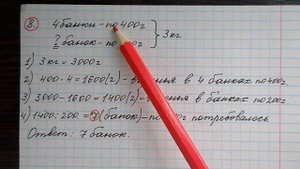 8. 4 банки - по 400г
? банок - по 0г } 3кг
1) 3кг = 3000г
2) 400·4 = 1600(г) - в 4 банках по 400г.
3) 3000 - 1600 = 1400(г) - в банках по 200г
4) 1400:200 = 7(банок) - по г потребовалось
Ответ: 7 банок.